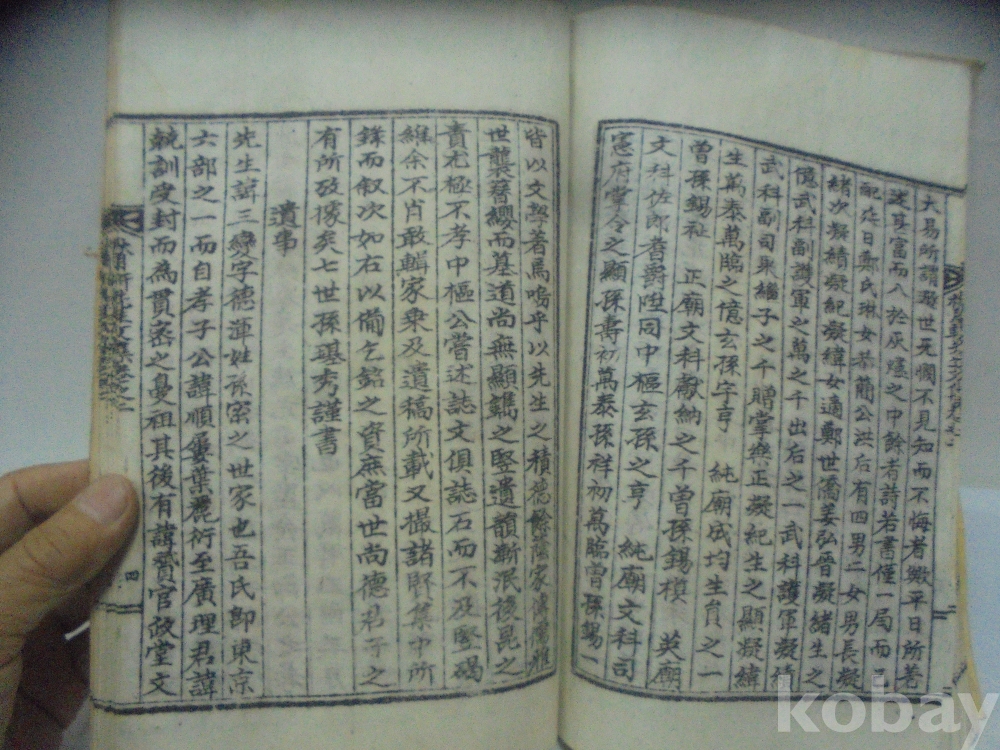 大易所謂遯世无悶不見知而不悔者歟平日所著
述其富而入於灰燼之中餘者詩若書僅一局而已
配延日鄭氏琳女恭簡公洪后有四男二女男長凝
緒次凝績凝紀凝緯女適鄭世僑姜弘晉凝緒生之
億武科副護軍之萬之千出后之一武科護軍凝績
武科副司果繼子之千贈掌樂正凝紀生之顯凝緯
生萬泰萬臨之億玄孫字亨 純廟成均生員之一
曾孫錫祉 正廟文科獻納之千曾孫錫楨 英廟
文科佐郎耆爵陞同中樞玄孫之亨 純廟文科司
憲府掌令之顯孫壽初萬泰孫祥初萬臨曾孫錫一
皆以文學著焉嗚乎以先生之積德餘蔭家傳儒雅
世襲簪纓而墓道尚無顯鐫之竪遺韻漸泯後昆之
責尤極不孝中樞公嘗述誌文俱誌石而不及竪碣
維余不肖敢輯家乗及遺稿所載又撮諸賢集中所
錄而叙次如右以備乞銘之資庶當世尚德君子之
有所攷據矣七世孫 秀謹書
遺事
先生諱三變字德渾姓孫密之世家也吾氏即東京
六部之一而自孝子公諱順靈葉蔓衍至廣理君諱
兢訓受封而為貫密之鼻祖其後有諱贇官政堂文
四
kobay